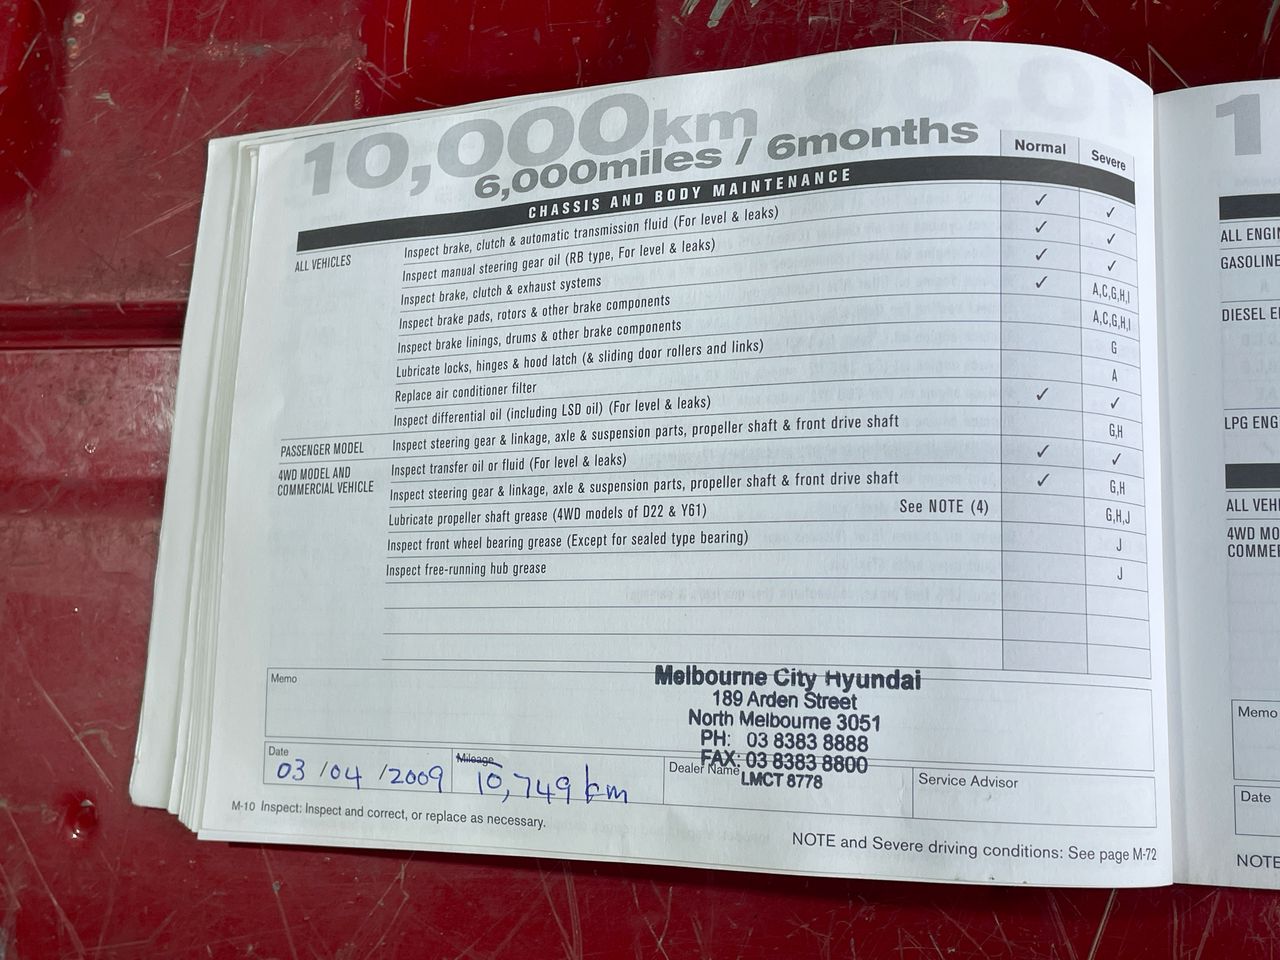 10,000km
6,000miles / 6months
Normal Severe
CHASSIS AND BODY MAINTENANCE
ALL VEHICLES Inspect brake, clutch & automatic transmission fluid (For level & leaks) ✓ ✓
Inspect manual steering gear oil (RB type, For level & leaks) ✓ ✓
Inspect brake, clutch & exhaust systems ✓ ✓
Inspect brake pads, rotors & other brake components ✓ A,C,G,H,I
Inspect brake linings, drums & other brake components A,C,G,H,I
Lubricate locks, hinges & hood latch (& sliding door rollers and links) G
Replace air conditioner filter A
Inspect differential oil (including LSD oil) (For level & leaks) ✓ ✓
PASSENGER MODEL Inspect steering gear & linkage, axle & suspension parts, propeller shaft & front drive shaft G,H
4WD MODEL AND COMMERCIAL VEHICLE Inspect transfer oil or fluid (For level & leaks) ✓ ✓
Inspect steering gear & linkage, axle & suspension parts, propeller shaft & front drive shaft ✓ G,H
Lubricate propeller shaft grease (4WD models of D22 & Y61) See NOTE (4) G,H,J
Inspect front wheel bearing grease (Except for sealed type bearing) J
Inspect free-running hub grease J
Memo
Melbourne City Hyundai
189 Arden Street
North Melbourne 3051
PH: 03 8383 8888
FAX: 03 8383 8800
LMCT 8778
Date 03/04/2009
Mileage 10,749 km
Dealer Name
Service Advisor
M-10 Inspect: Inspect and correct, or replace as necessary.
NOTE and Severe driving conditions: See page M-72
1
ALL ENGIN
GASOLINE
DIESEL E
LPG ENG
ALL VEHI
4WD MO
COMME
Memo
Date
NOTE